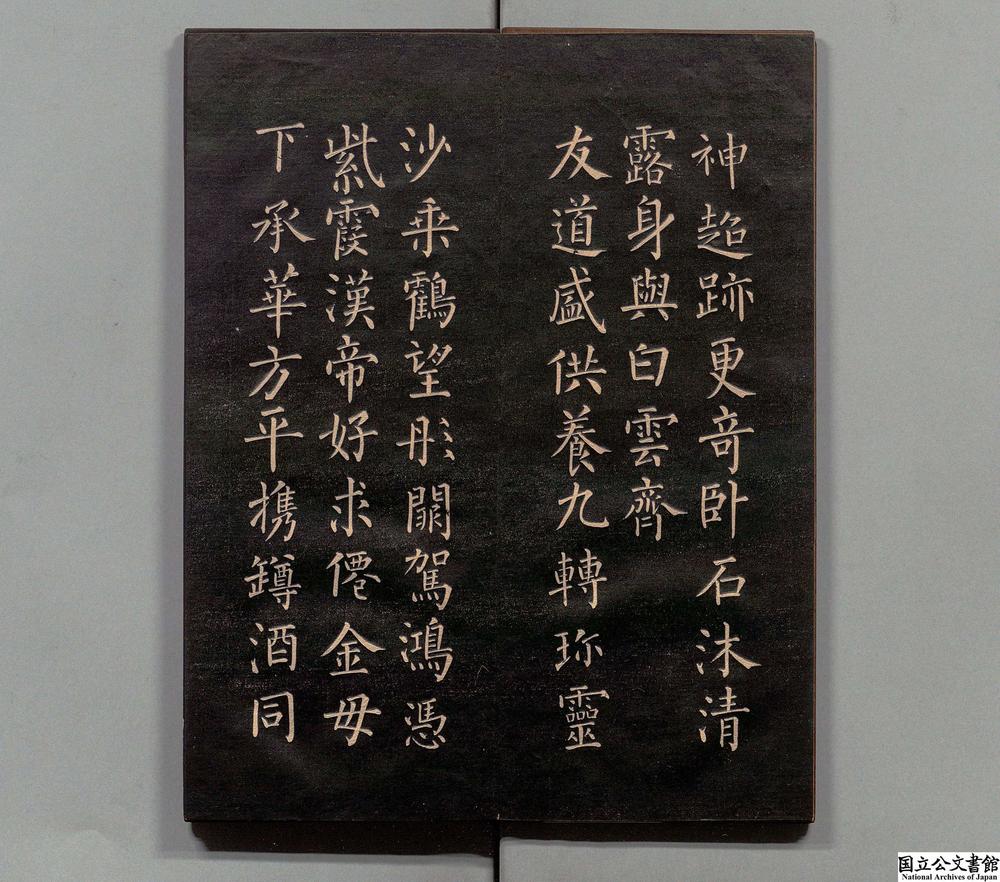 神超跡更竒卧石沐清
露身與白雲齊
友道盛供養九轉珎靈
沙乗鶴望彤闕駕鴻憑
紫霞漢帝好求僊金母
下承華方平携罇酒同
国立公文書館
National Archives of Japan